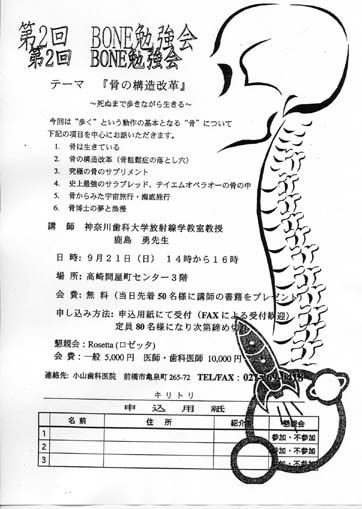 第2回 BONE勉強会
第2回 BONE勉強会
テーマ 『骨の構造改革』
～死ぬまで歩きながら生きる～
今回は“歩く”という動作の基本となる“骨”について
下記の項目を中心にお話いただきます。
1. 骨は生きている
2. 骨の構造改革（骨粗鬆症の落とし穴）
3. 究極の骨のサプリメント
4. 史上最強のサラブレッド、テイエムオペラオーの骨の中
5. 骨からみた宇宙旅行・海底旅行
6. 骨博士の夢と浪漫
講 師 神奈川歯科大学放射線学教室教授
鹿島 勇先生
日 時：９月２１日（日） １４時から１６時
場 所：高崎問屋町センター３階
会 費：無 料（当日先着 50 名様に講師の書籍をプレゼント）
申し込み方法：申込用紙にて受付（FAX による受付歓迎）
定員 80 名様になり次第締め切り
懇親会：Rosetta (ロゼッタ)
会 費：一般 5,000 円 医師・歯科医師 10,000 円
連絡先：小山歯科医院 前橋市亀泉町 265-72 TEL/FAX：
キリトリ
申 込 用 紙
名 前 住 所 紹介 懇親会
1 参加・不参加
2 参加・不参加
3 参加・不参加